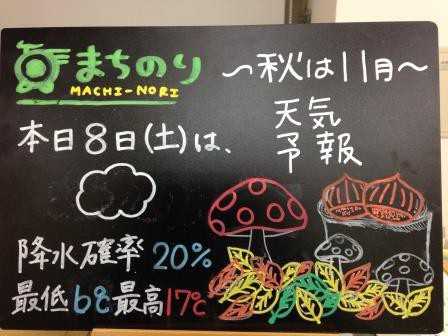 まちのり
MACHI-NORI
〜秋は11月〜
本日8日(土)は、
天気
予報
降水確率 20%
最低6℃最高17℃